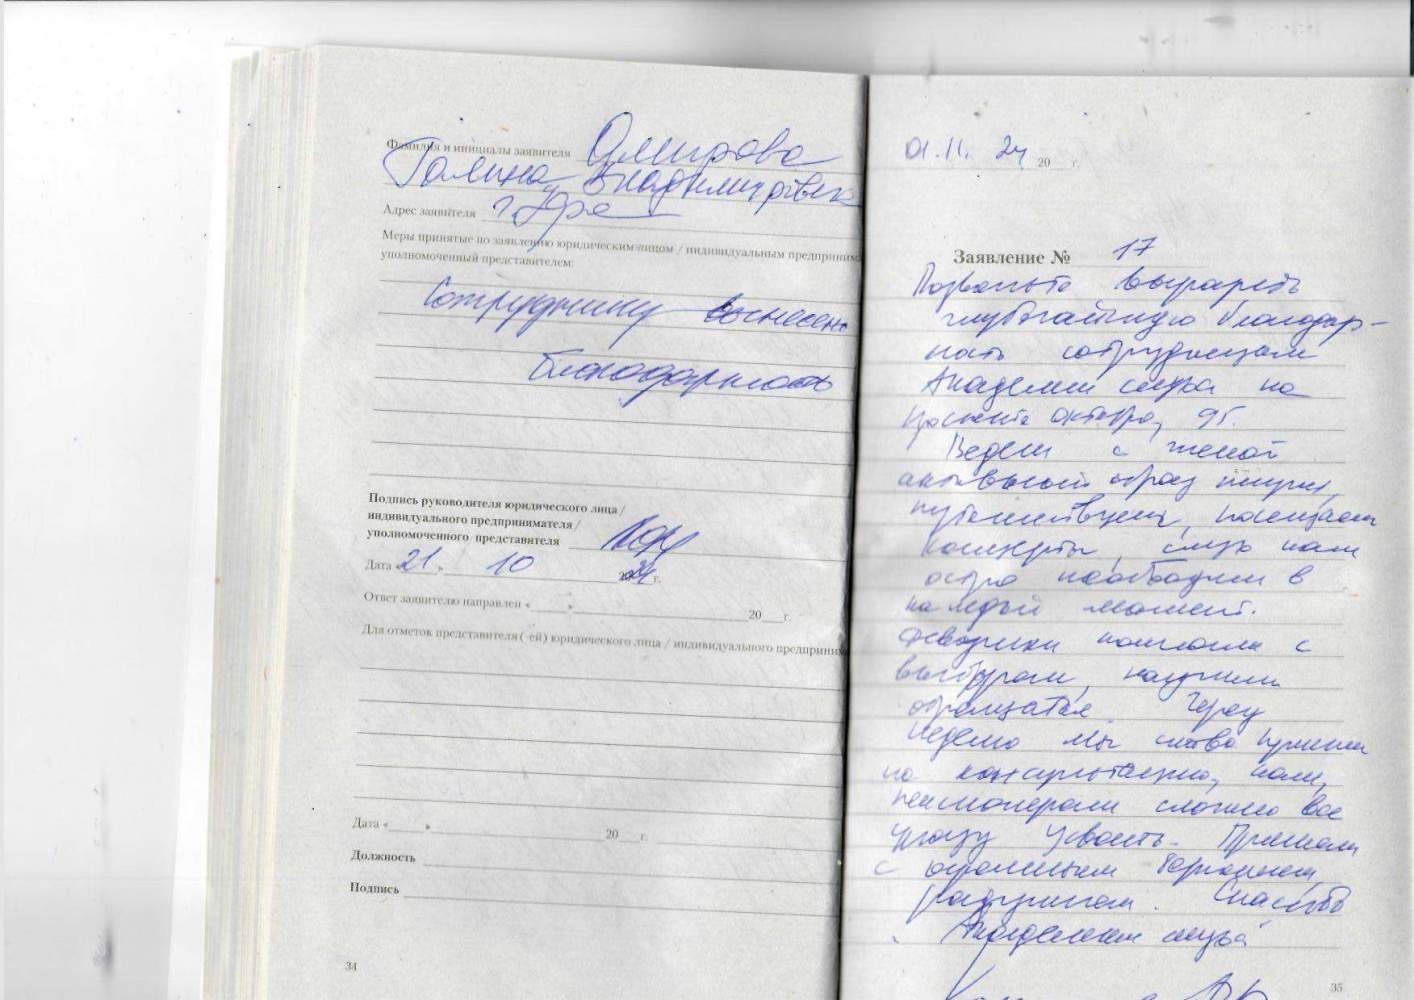 Фамилия и инициалы заявителя Омирова
Галина Владимировна
Адрес заявителя г.
Меры принятые по заявлению юридическим лицом / индивидуальным предприним
уполномоченный представителем:
Сотруднику вынесена
благодарность
Подпись руководителя юридического лица /
индивидуального предпринимателя /
уполномоченного представителя
Дата «21» 10 2024 г.
Ответ заявителю направлен «____» 20___г.
Для отметок представителя (-ей) юридического лица / индивидуального предприним
Дата «____» 20___г.
Должность
Подпись
34
01.11. 24 20___г.
Заявление № 17
Позвольте выразить
глубочайшую благодар-
ность сотрудницам
Академии слуха на
проспекте Октября, 9б.
Ведем с женой
активный образ жизни,
путешествуем, посещаем
концерты, слух нам
остро необходим в
каждый момент.
Девочки помогли с
выбором, научили
обращаться. Через
неделю мы снова пришли
на консультацию, нам,
пенсионерам сложно все
сразу усвоить. Приняли
с огромным терпением,
радушием. Спасибо
Академии слуха
35